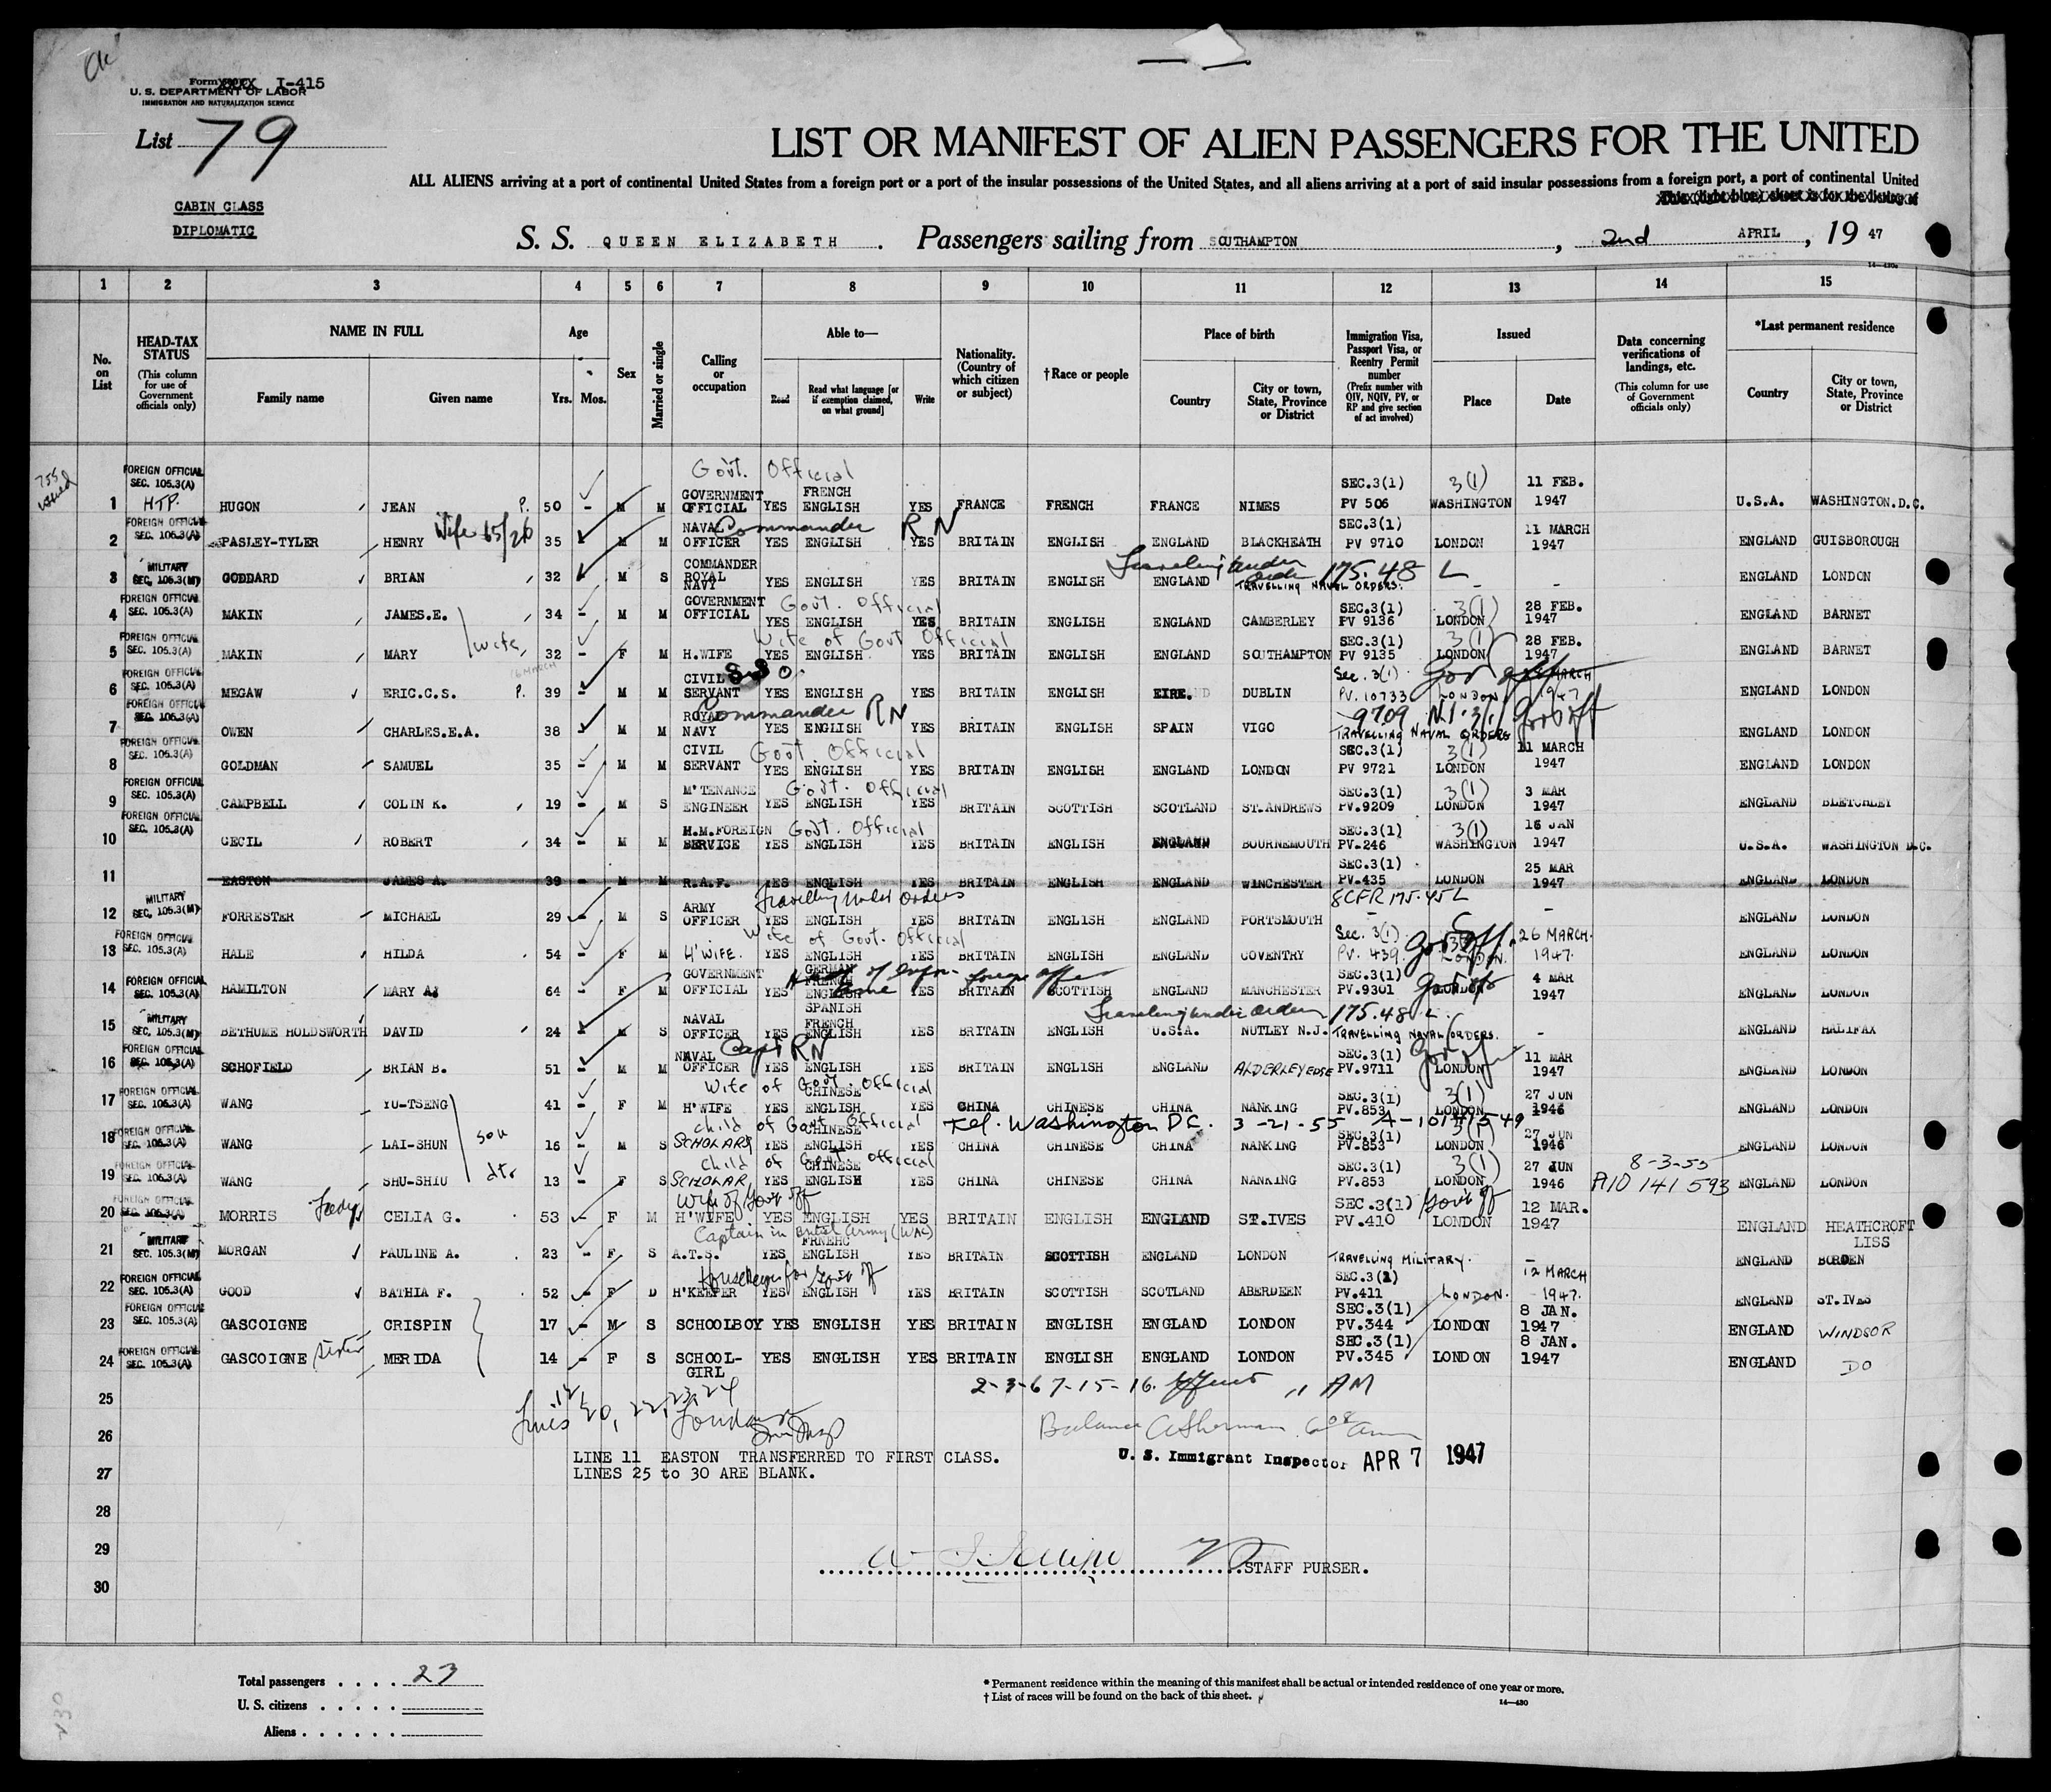 Form XXXX I-415
U. S. DEPARTMENT OF LABOR
IMMIGRATION AND NATURALIZATION SERVICE
List 79
LIST OR MANIFEST OF ALIEN PASSENGERS FOR THE UNITED
ALL ALIENS arriving at a port of continental United States from a foreign port or a port of the insular possessions of the United States, and all aliens arriving at a port of said insular possessions from a foreign port, a port of continental United
This (light blue) sheet is for the listing of
CABIN CLASS
DIPLOMATIC
S. S. QUEEN ELIZABETH . Passengers sailing from SOUTHAMPTON , 2nd APRIL , 19 47
14—430a
1 2 3 4 5 6 7 8 9 10 11 12 13 14 15
No. on List
HEAD-TAX STATUS (This column for use of Government officials only)
NAME IN FULL Family name Given name
Age Yrs. Mos.
Sex
Married or single
Calling or occupation
Able to— Read Read what language [or if exemption claimed, on what ground] Write
Nationality. (Country of which citizen or subject)
†Race or people
Place of birth Country City or town, State, Province or District
Immigration Visa, Passport Visa, or Reentry Permit number (Prefix number with QIV, NQIV, PV, or RP and give section of act involved)
Issued Place Date
Data concerning verifications of landings, etc. (This column for use of Government officials only)
*Last permanent residence Country City or town, State, Province or District
755 issued
FOREIGN OFFICIAL SEC. 105.3(A) Govt. Official SEC.3(1) 3(1) 11 FEB.
1 HTP. HUGON JEAN P. 50 - M M GOVERNMENT OFFICIAL YES FRENCH ENGLISH YES FRANCE FRENCH FRANCE NIMES PV 506 WASHINGTON 1947 U.S.A. WASHINGTON.D.C.
FOREIGN OFFICIAL SEC. 105.3(A) Wife 65/26 Commander RN SEC.3(1) 11 MARCH
2 PASLEY-TYLER HENRY 35 M M NAVAL OFFICER YES ENGLISH YES BRITAIN ENGLISH ENGLAND BLACKHEATH PV 9710 LONDON 1947 ENGLAND GUISBOROUGH
MILITARY SEC. 105.3(M) Traveling under orders 175.48 L
3 GODDARD BRIAN 32 M S COMMANDER ROYAL NAVY YES ENGLISH YES BRITAIN ENGLISH ENGLAND TRAVELLING NAVAL ORDERS. - - ENGLAND LONDON
FOREIGN OFFICIAL SEC. 105.3(A) Govt. Official SEC.3(1) 3(1) 28 FEB.
4 MAKIN JAMES.E. 34 - M M GOVERNMENT OFFICIAL YES ENGLISH YES BRITAIN ENGLISH ENGLAND CAMBERLEY PV 9136 LONDON 1947 ENGLAND BARNET
FOREIGN OFFICIAL SEC. 105.3(A) wife Wife of Govt Official SEC.3(1) 3(1) 28 FEB.
5 MAKIN MARY 32 - F M H.WIFE YES ENGLISH YES BRITAIN ENGLISH ENGLAND SOUTHAMPTON PV 9135 LONDON 1947 ENGLAND BARNET
FOREIGN OFFICIAL SEC. 105.3(A) 16 MARCH Sec. 3(1) Gov off MARCH
6 MEGAW ERIC.C.S. P. 39 M M CIVIL SERVANT YES ENGLISH YES BRITAIN ENGLISH EIRE. DUBLIN PV. 10733 LONDON 1947 ENGLAND LONDON
FOREIGN OFFICIAL SEC. 105.3(A) Commander RN 9709 3(1) Gov off
7 OWEN CHARLES.E.A. 38 M M ROYAL NAVY YES ENGLISH YES BRITAIN ENGLISH SPAIN VIGO TRAVELLING NAVAL ORDERS ENGLAND LONDON
FOREIGN OFFICIAL SEC. 105.3(A) Govt. Official SEC.3(1) 3(1) 11 MARCH
8 GOLDMAN SAMUEL 35 - M M CIVIL SERVANT YES ENGLISH YES BRITAIN ENGLISH ENGLAND LONDON PV 9721 LONDON 1947 ENGLAND LONDON
FOREIGN OFFICIAL SEC. 105.3(A) Govt. Official SEC.3(1) 3(1) 3 MAR
9 CAMPBELL COLIN K. 19 - M S M'TENANCE ENGINEER YES ENGLISH YES BRITAIN SCOTTISH SCOTLAND ST.ANDREWS PV.9209 LONDON 1947 ENGLAND BLETCHLEY
FOREIGN OFFICIAL SEC. 105.3(A) Govt. Official SEC.3(1) 3(1) 16 JAN
10 CECIL ROBERT 34 - M M H.M.FOREIGN SERVICE YES ENGLISH YES BRITAIN ENGLISH ENGLAND BOURNEMOUTH PV-246 WASHINGTON 1947 U.S.A. WASHINGTON D.C.
SEC.3(1) 25 MAR
11 EASTON JAMES A. 39 - M M R.A.F. YES ENGLISH YES BRITAIN ENGLISH ENGLAND WINCHESTER PV.435 LONDON 1947 ENGLAND LONDON
MILITARY SEC. 105.3(M) Travelling Under Orders 8CFR 175.45 L
12 FORRESTER MICHAEL 29 - M S ARMY OFFICER YES ENGLISH YES BRITAIN ENGLISH ENGLAND PORTSMOUTH - - ENGLAND LONDON
FOREIGN OFFICIAL SEC. 105.3(A) Wife of Govt. Official Sec. 3(1) Gov off. 26 MARCH.
13 HALE HILDA 54 - F M H'WIFE. YES ENGLISH YES BRITAIN ENGLISH ENGLAND COVENTRY PV. 439 LONDON. 1947. ENGLAND LONDON
FOREIGN OFFICIAL SEC. 105.3(A) SEC.3(1) Gov off 4 MAR
14 HAMILTON MARY A. 64 - F M GOVERNMENT OFFICIAL YES GERMAN FRENCH ENGLISH YES BRITAIN SCOTTISH ENGLAND MANCHESTER PV.9301 LONDON 1947 ENGLAND LONDON
MILITARY SEC. 105.3(M) SPANISH Traveling under Orders 175.48 L.
15 BETHUME HOLDSWORTH DAVID 24 M S NAVAL OFFICER YES FRENCH ENGLISH YES BRITAIN ENGLISH U.S.A. NUTLEY N.J. TRAVELLING NAVAL ORDERS. - ENGLAND HALIFAX
FOREIGN OFFICIAL SEC. 105.3(A) Capt RN SEC.3(1) Gov off 11 MAR
16 SCHOFIELD BRIAN B. 51 - M M NAVAL OFFICER YES ENGLISH YES BRITAIN ENGLISH ENGLAND ALDERLEY EDGE PV.9711 LONDON 1947 ENGLAND LONDON
FOREIGN OFFICIAL SEC. 105.3(A) Wife of Govt. Official SEC.3(1) 3(1) 27 JUN
17 WANG YU-TSENG 41 - F M H'WIFE YES CHINESE ENGLISH YES CHINA CHINESE CHINA NANKING PV.853 LONDON 1946 ENGLAND LONDON
FOREIGN OFFICIAL SEC. 105.3(A) son child of Govt Official Washington D.C. 3-21-55 A-10141549 SEC.3(1) 27 JUN
18 WANG LAI-SHUN 16 - M S SCHOLAR YES CHINESE ENGLISH YES CHINA CHINESE CHINA NANKING PV.853 LONDON 1946 ENGLAND LONDON
FOREIGN OFFICIAL SEC. 105.3(A) dtr child of Govt. Official SEC.3(1) 3(1) 27 JUN 8-3-55
19 WANG SHU-SHIU 13 - F S SCHOLAR YES CHINESE ENGLISH YES CHINA CHINESE CHINA NANKING PV.853 LONDON 1946 A10 141 593 ENGLAND LONDON
FOREIGN OFFICIAL SEC. 105.3(A) Lady Wife of Govt Off SEC.3(1) Gov't off 12 MAR.
20 MORRIS CELIA G. 53 - F M H'WIFE YES ENGLISH YES BRITAIN ENGLISH ENGLAND ST.IVES PV.410 LONDON 1947 ENGLAND HEATHCROFT LISS
MILITARY SEC. 105.3(M) Captain in British Army (WAC)
21 MORGAN PAULINE A. 23 - F S A.T.S. YES FRNEHC ENGLISH YES BRITAIN SCOTTISH ENGLAND LONDON TRAVELLING MILITARY. - ENGLAND BORDEN
FOREIGN OFFICIAL SEC. 105.3(A) Housekeeper for Gov off SEC.3(2) 12 MARCH
22 GOOD BATHIA F. 52 - F D H'KEEPER YES ENGLISH YES BRITAIN SCOTTISH SCOTLAND ABERDEEN PV.411 LONDON. 1947. ENGLAND ST.IVES
FOREIGN OFFICIAL SEC. 105.3(A) SEC.3(1) 8 JAN.
23 GASCOIGNE CRISPIN 17 - M S SCHOOLBOY YES ENGLISH YES BRITAIN ENGLISH ENGLAND LONDON PV.344 LONDON 1947 ENGLAND WINDSOR
FOREIGN OFFICIAL SEC. 105.3(A) SEC.3(1) 8 JAN.
24 GASCOIGNE sister MERIDA 14 - F S SCHOOL-GIRL YES ENGLISH YES BRITAIN ENGLISH ENGLAND LONDON PV.345 LONDON 1947 ENGLAND DO
25 2-3-6 7-15-16. AM
Lines 12, 20, 22, 23, 24
26 Balance
LINE 11 EASTON TRANSFERRED TO FIRST CLASS. U. S. Immigrant Inspector APR 7 1947
27 LINES 25 to 30 ARE BLANK.
28
29 STAFF PURSER.
30
Total passengers . . . . 23
U. S. citizens . . . . .
Aliens . . . . . .
* Permanent residence within the meaning of this manifest shall be actual or intended residence of one year or more.
† List of races will be found on the back of this sheet.
14—430